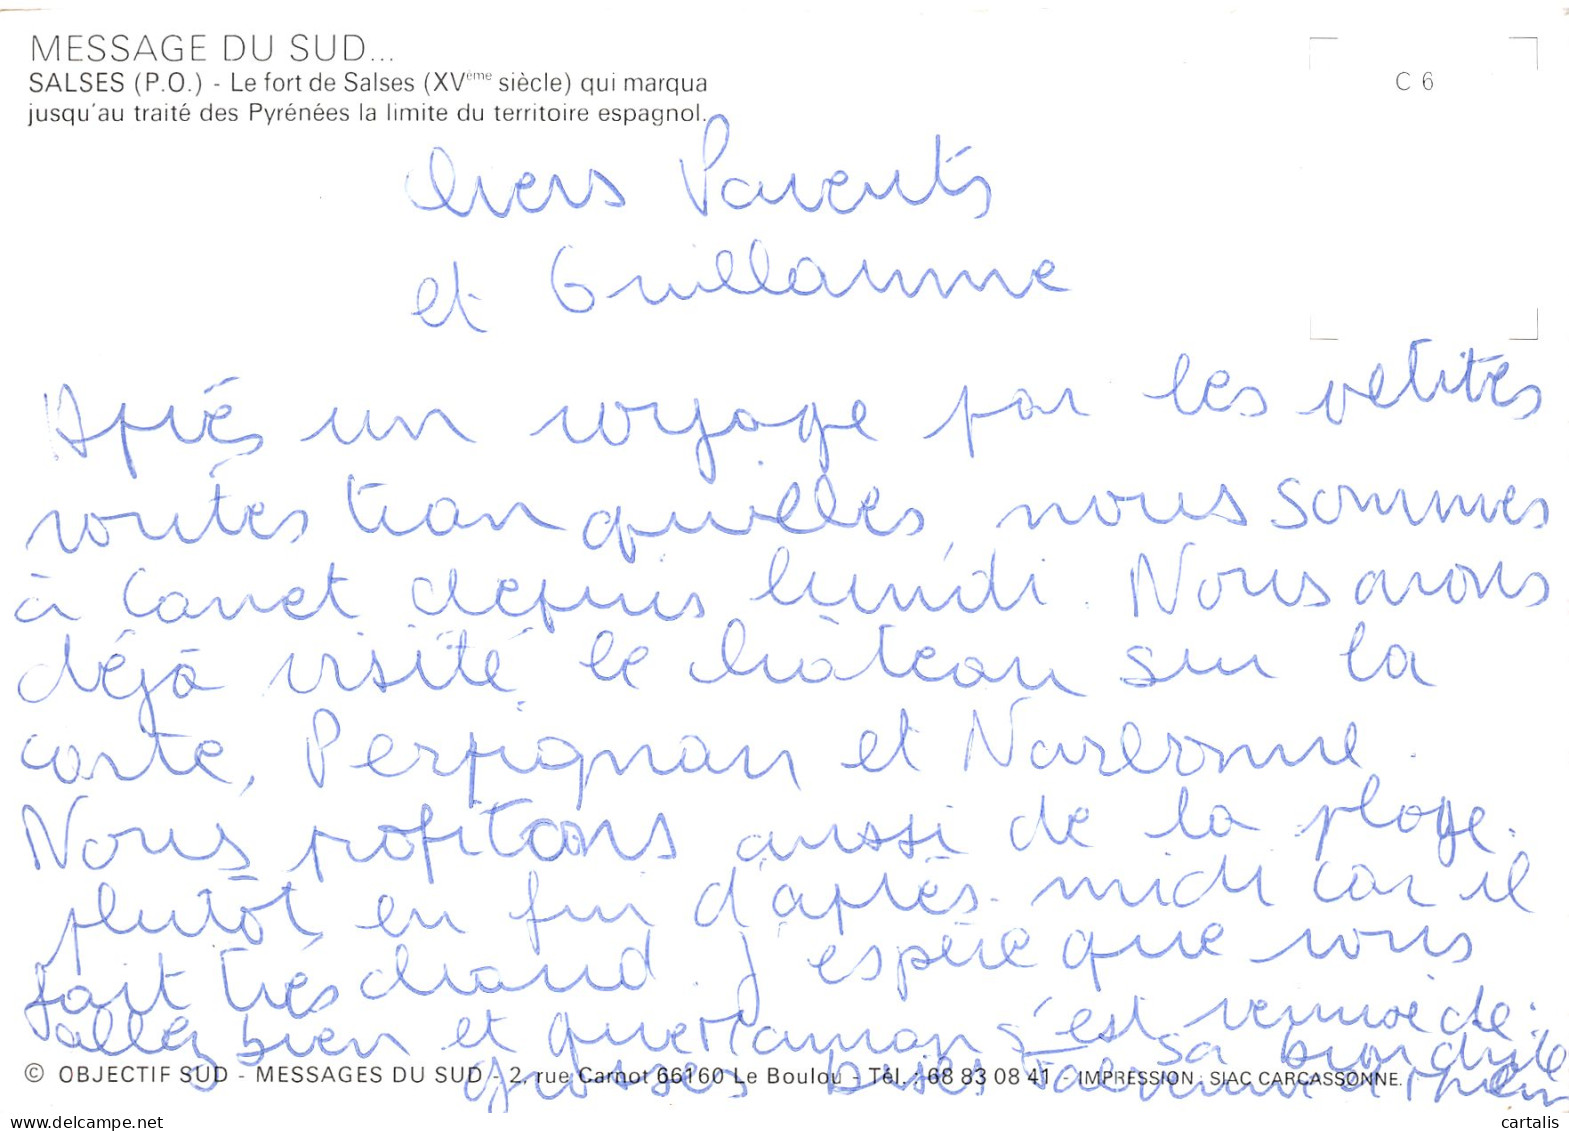 MESSAGE DU SUD...
SALSES (P.O.) - Le fort de Salses (XVème siècle) qui marqua
jusqu'au traité des Pyrénées la limite du territoire espagnol.
C 6
Chers Parents
et Guillaume
Après un voyage par les petites
routes tranquilles, nous sommes
à Canet depuis lundi. Nous avons
déjà visité le château sur la
carte, Perpignan et Narbonne.
Nous profitons aussi de la plage.
plutôt en fin d'après-midi car il
fait très chaud. J'espère que vous
allez bien et que Maman s'est remise de
sa bronchite
grosses bises
© OBJECTIF SUD - MESSAGES DU SUD - 2, rue Carnot 66160 Le Boulou - Tél. 68 83 08 41 - IMPRESSION : SIAC CARCASSONNE.
delcampe.net
cartalis